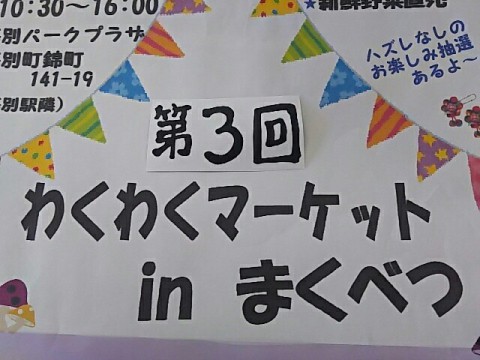 10:30～16:00
別パークプラザ
別町錦町
141-19
別駅隣）
★新鮮野菜直売
ハズレなしの
お楽しみ抽選
あるよ～
第3回
わくわくマーケット
in まくべつ